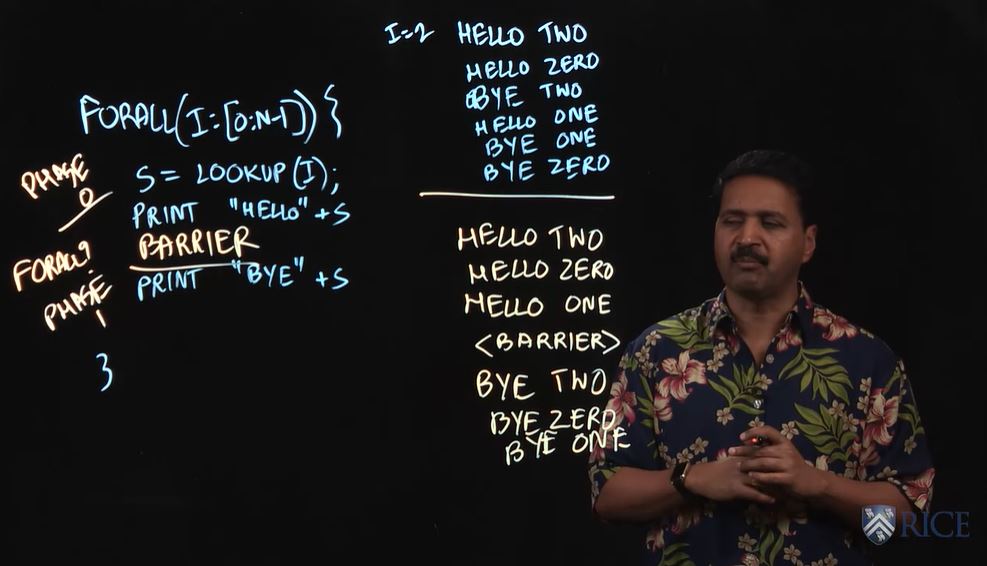 FORALL(I:[0:N-1]) {
PHASE
0
S = LOOKUP(I);
PRINT "HELLO" + S
BARRIER
FORALL?
PHASE
1
PRINT "BYE" + S
}
I=2 HELLO TWO
HELLO ZERO
BYE TWO
HELLO ONE
BYE ONE
BYE ZERO
HELLO TWO
HELLO ZERO
HELLO ONE
<BARRIER>
BYE TWO
BYE ZERO
BYE ONE
RICE